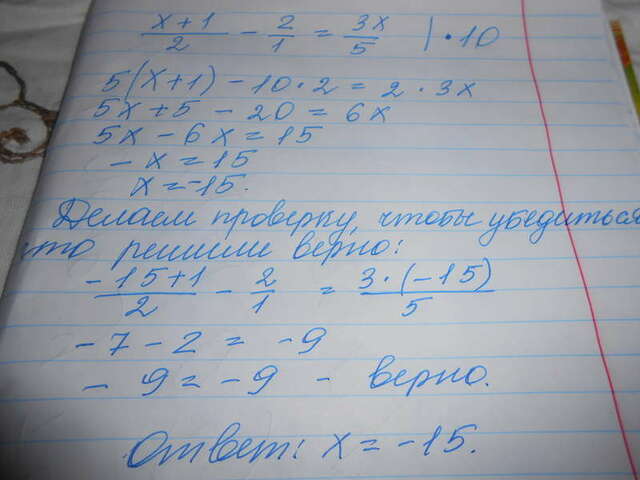 x+1/2 - 2/1 = 3x/5 | • 10
5(x+1) - 10 • 2 = 2 • 3x
5x + 5 - 20 = 6x
5x - 6x = 15
- x = 15
x = -15.
Делаем проверку, чтобы убедиться
что решили верно:
-15+1/2 - 2/1 = 3 • (-15)/5
- 7 - 2 = -9
- 9 = -9 - верно.
Ответ: x = -15.